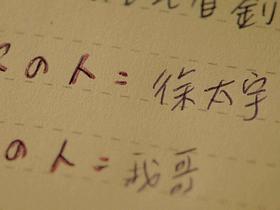 の人=徐太宇
の人=我哥